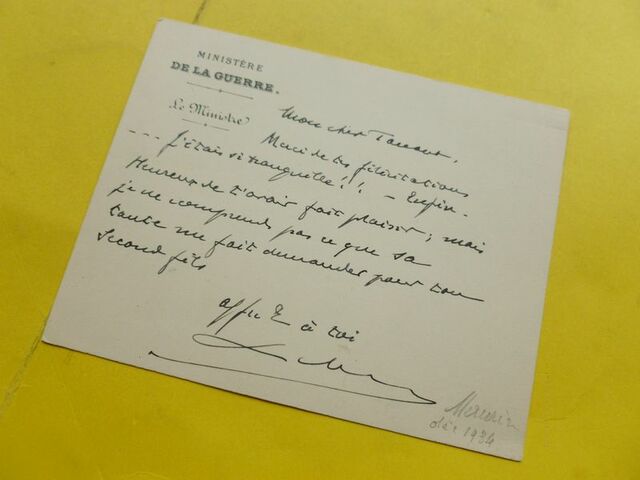 MINISTÈRE
DE LA GUERRE.
Le Ministre
Mon cher
Merci de tes félicitations
--- j'étais si tranquille!! - Enfin -
Heureux de t'avoir fait plaisir; mais
je ne comprends pas ce que sa
tante me fait demander pour ton
second fils
à toi
Maurin
déc 1934